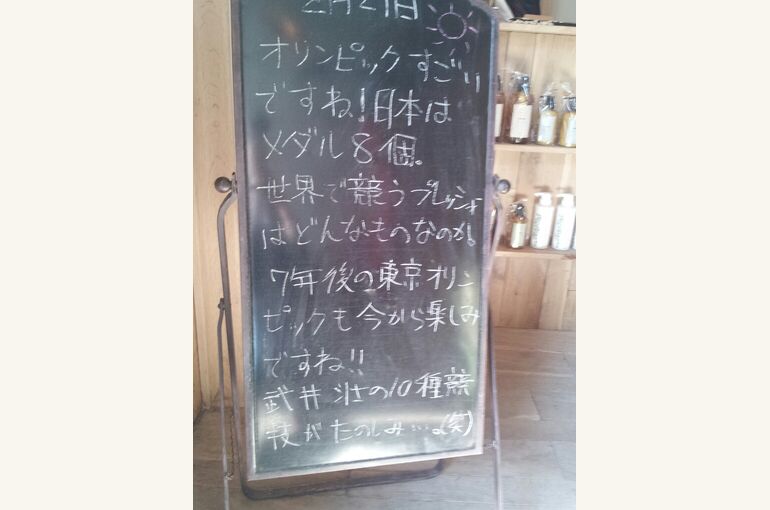 2月21日
オリンピックすごい
ですね!日本は
メダル8個。
世界で競うプレッシャー
はどんなものなのか。
7年後の東京オリン
ピックも今から楽しみ
ですね!!
武井壮の10種競
技がたのしみ…。(笑)